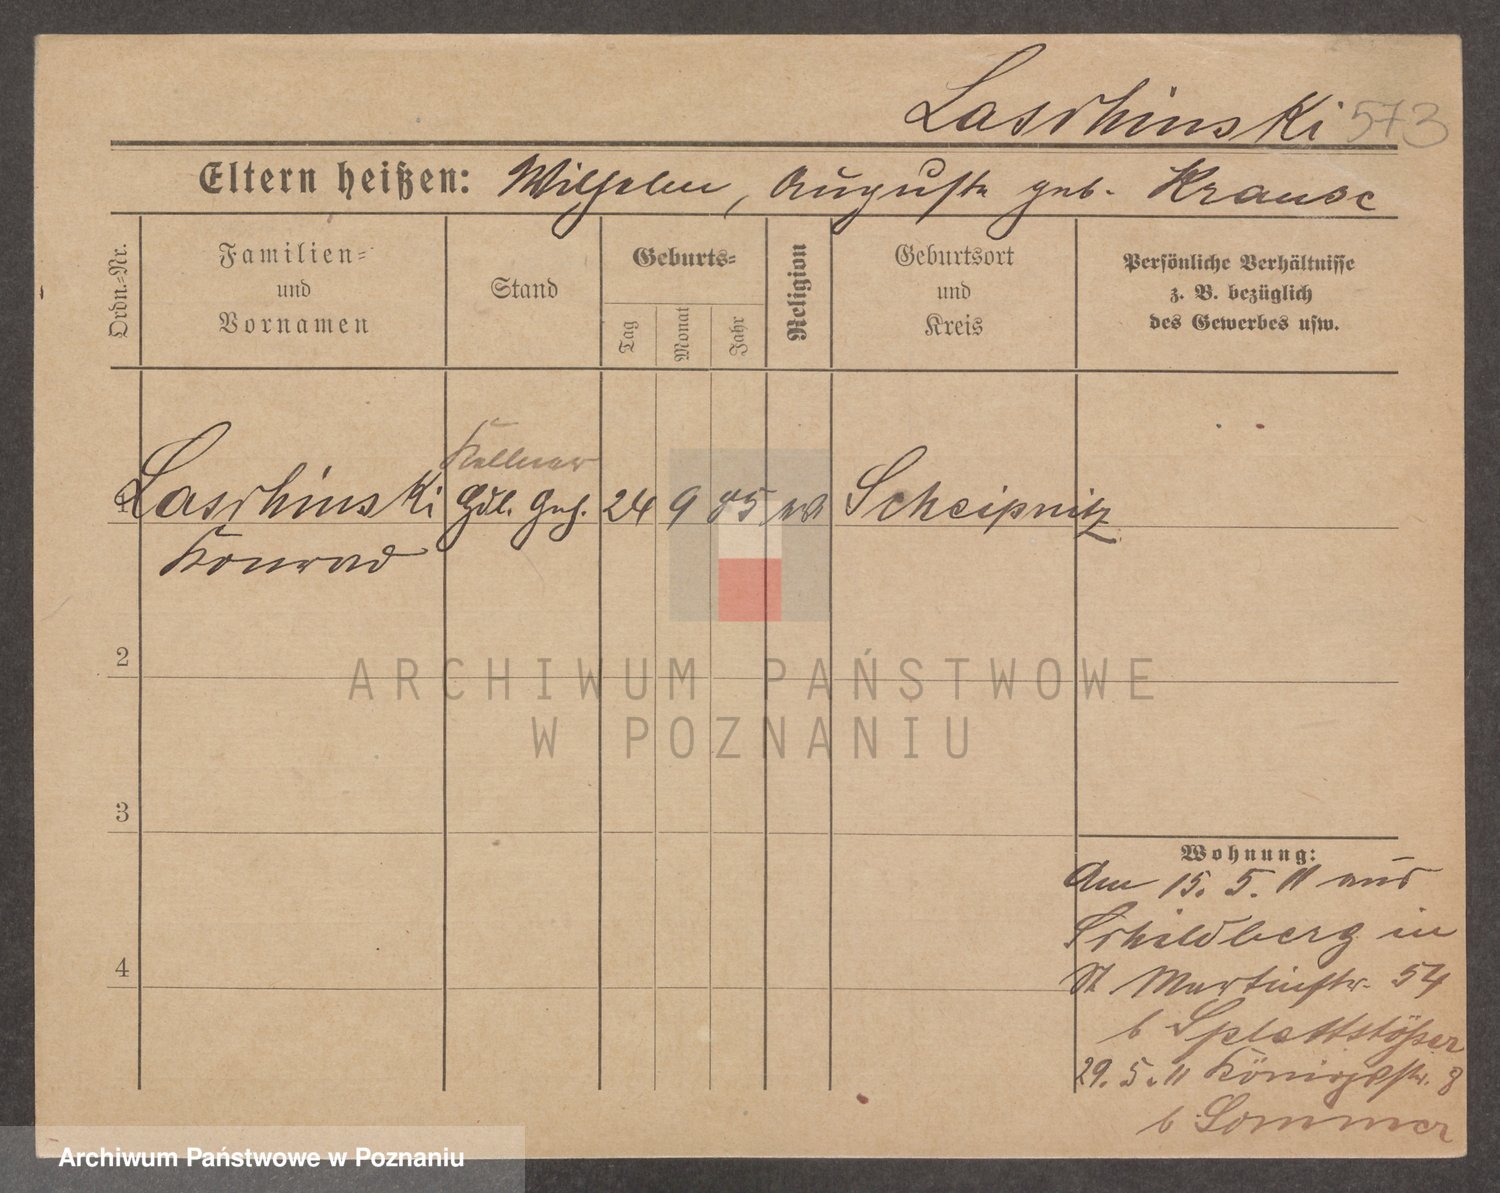 Laschinski 573
Eltern heißen: Wilhelm, Auguste geb. Krause
Ordn.-Nr.
Familien-
und
Vornamen
Stand
Geburts-
Tag
Monat
Jahr
Religion
Geburtsort
und
Kreis
Persönliche Verhältnisse
z. B. bezüglich
des Gewerbes usw.
Kellner
1 Laschinski Hdl. Geh. 24 9 85 ev Scheipnitz
Konrad
2
ARCHIWUM PAŃSTWOWE
W POZNANIU
3
Wohnung:
Am 15. 5. 11 aus
Schildberg in
4
St Martinstr. 54
b Splettstößer
29. 5. 11 Königstr. 8
b Sommer
Archiwum Państwowe w Poznaniu